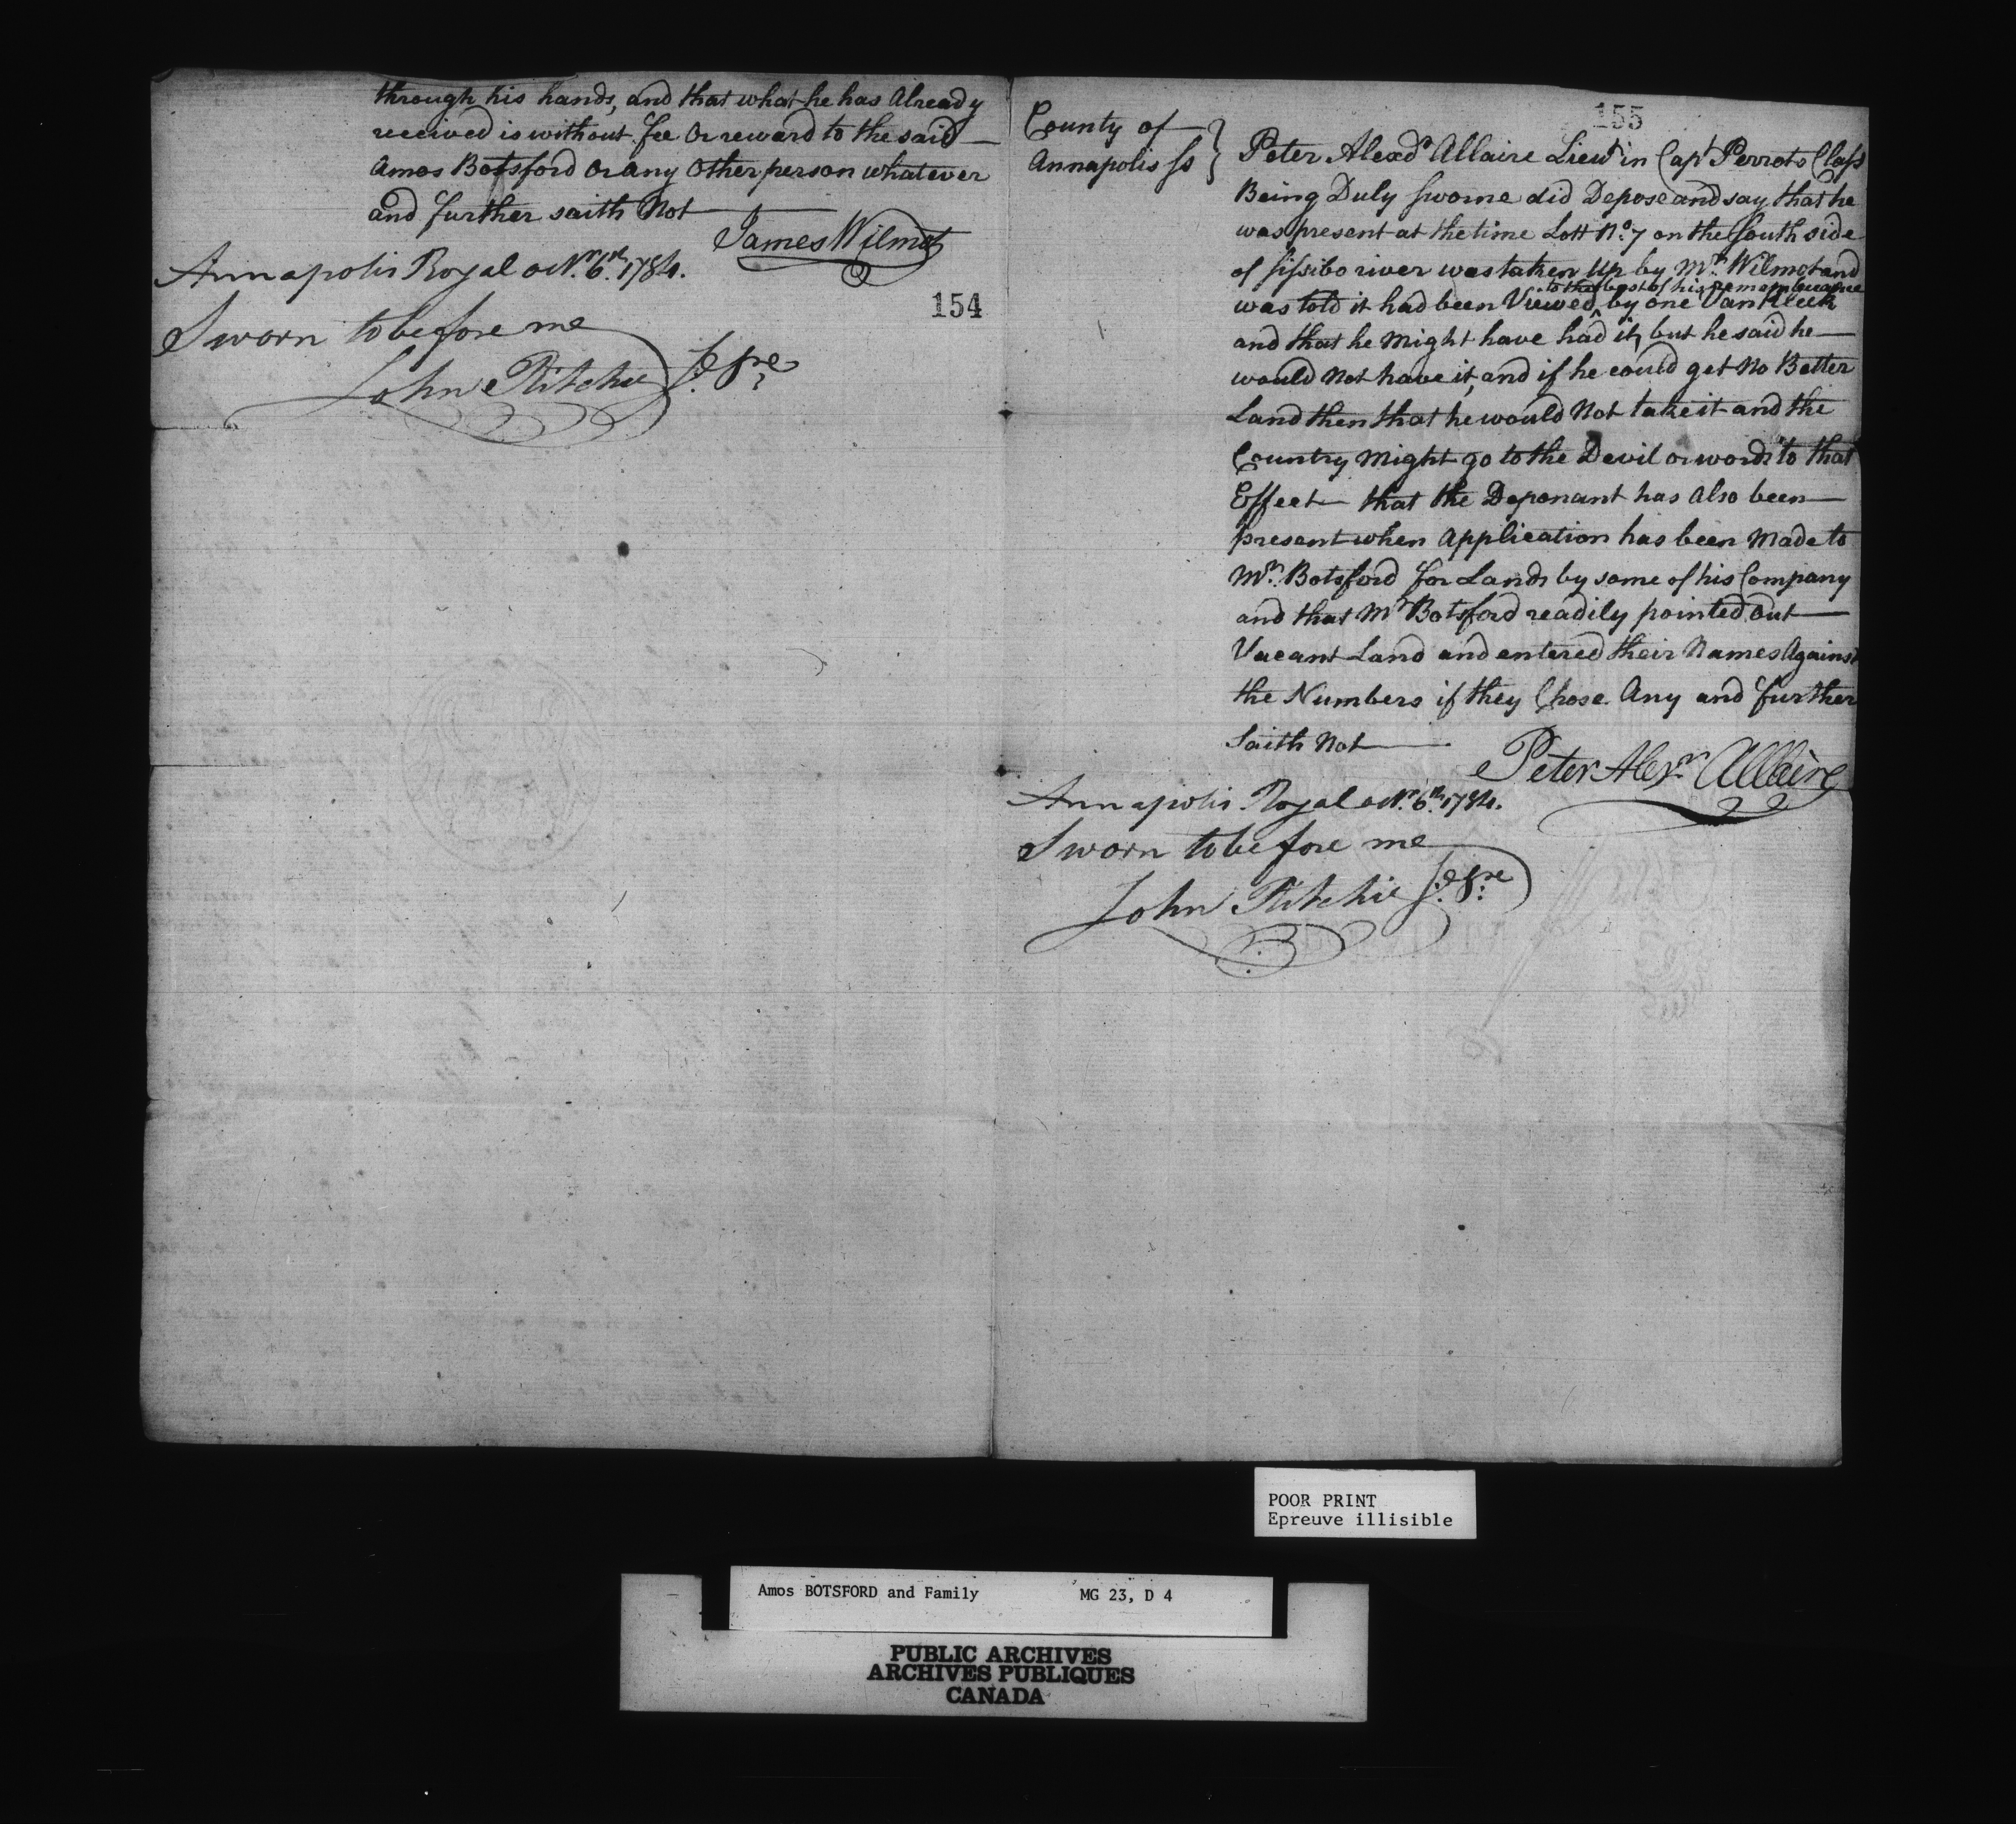 through his hands, and that what he has Already
received is without fee Or reward to the said —
Amos Botsford Or any Other person whatever
and further saith Not —
James Wilmot
Annapolis Royal octr. 6th. 1784.
154
Sworn to before me
John Ritchie
155
County of
Annapolis ss
Peter Alexdr Allaire Lieut in Capt Perrots Class
Being Duly sworne did Depose and say that he
was present at the time Lott No. 7 on the South side
of sissibo river was taken Up by Mr. Wilmot and
to the best of his remembrance
was told it had been Viewed ^ by one Van Kleek
and that he Might have had it, but he said he —
would Not have it, and if he could get No Better
Land then that he would Not take it and the
Country Might go to the Devil or words to that
Effect — that the Deponant has Also been —
present when Application has been Made to
Mr. Botsford for Lands by some of his Company
and that Mr Botsford readily pointed Out —
Vacant Land and entered their Names Against
the Numbers if they Chose Any and further
Saith Not —
Peter Alexr Allaire
Annapolis Royal octr. 6th. 1784.
Sworn to before me
John Ritchie
POOR PRINT
Epreuve illisible
Amos BOTSFORD and Family MG 23, D 4
PUBLIC ARCHIVES
ARCHIVES PUBLIQUES
CANADA